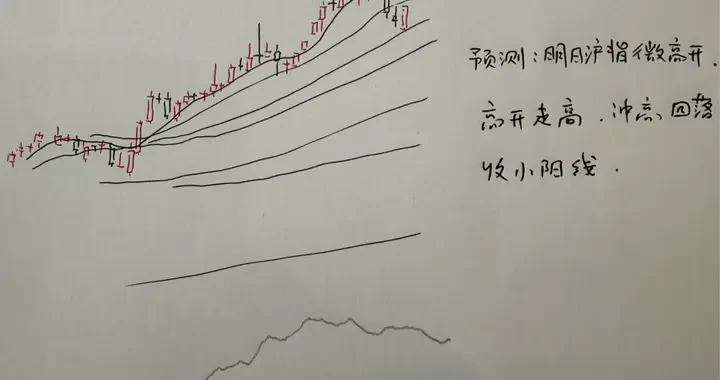 预测:明日沪指微高开.
高开走高.冲高回落
收小阴线.